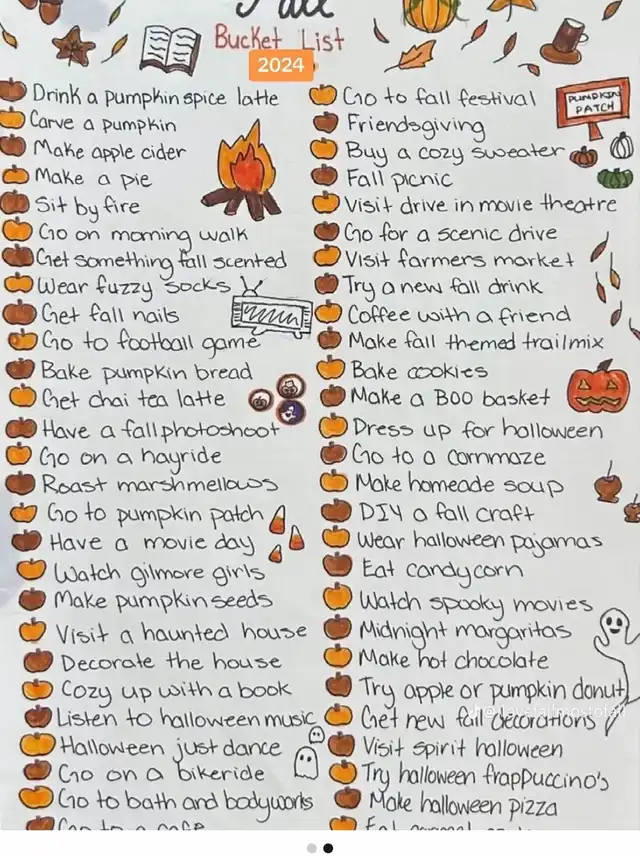 Fall
Bucket List
2024
Drink a pumpkin spice latte
Carve a pumpkin
Make apple cider
Make a pie
Sit by fire
Go on morning walk
Get something fall scented
Wear fuzzy socks
Get fall nails
Go to football game
Bake pumpkin bread
Get chai tea latte
Have a fall photoshoot
Go on a hayride
Roast marshmellows
Go to pumpkin patch
Have a movie day
Watch gilmore girls
Make pumpkin seeds
Visit a haunted house
Decorate the house
Cozy up with a book
Listen to halloween music
Halloween just dance
Go on a bikeride
Go to bath and bodyworks
Go to a cafe
Go to fall festival
Friendsgiving
Buy a cozy sweater
Fall picnic
Visit drive in movie theatre
Go for a scenic drive
Visit farmers market
Try a new fall drink
Coffee with a friend
Make fall themed trailmix
Bake cookies
Make a BOO basket
Dress up for halloween
Go to a cornmaze
Make homeade soup
DIY a fall craft
Wear halloween pajamas
Eat candycorn
Watch spooky movies
Midnight margaritas
Make hot chocolate
Try apple or pumpkin donut
Get new fall decorations
Visit spirit halloween
Try halloween frappuccino's
Make halloween pizza
Eat
PUMPKIN
PATCH